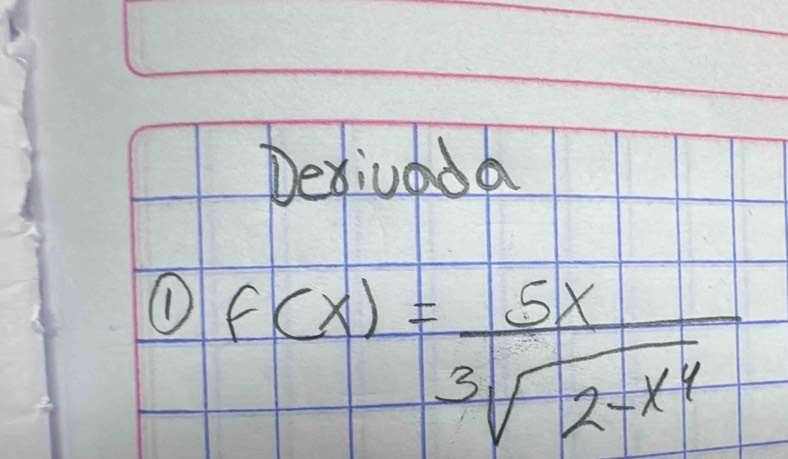 Derivada
① f(x) = 5x / ∛(2-x⁴)